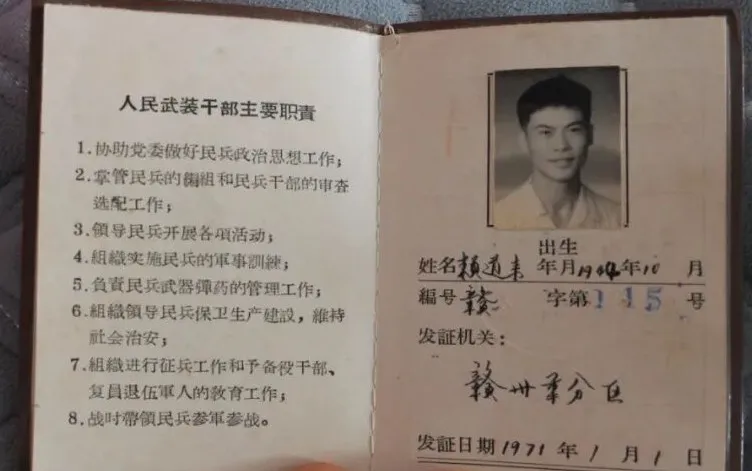 人民武装干部主要职責
1.协助党委做好民兵政治思想工作；
2.掌管民兵的編組和民兵干部的审査
选配工作；
3.領导民兵开展各項活动；
4.組織实施民兵的軍事訓練；
5.负責民兵武器彈药的管理工作；
6.組織領导民兵保卫生产建設，維持
社会治安；
7.組織进行征兵工作和予备役干部、
复員退伍軍人的敎育工作；
8.战时帶領民兵参軍参战。
出生
姓名 賴道 年月19 年10 月
編号 赣 字第 115 号
发証机关：
赣州军分区
发証日期 1971 年 1 月 1 日